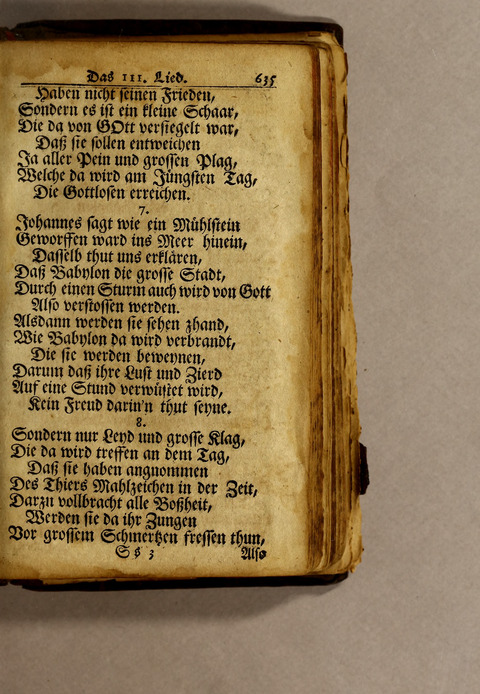 Das 111. Lied. 635
Haben nicht seinen Frieden,
Sondern es ist ein kleine Schaar,
Die da von GOtt versiegelt war,
Daß sie sollen entweichen
Ja aller Pein und grossen Plag,
Welche da wird am Jüngsten Tag,
Die Gottlosen erreichen.
7.
Johannes sagt wie ein Mühlstein
Geworffen ward ins Meer hinein,
Dasselb thut uns erklären,
Daß Babylon die grosse Stadt,
Durch einen Sturm auch wird von Gott
Also verstossen werden.
Alsdann werden sie sehen zhand,
Wie Babylon da wird verbrandt,
Die sie werden beweynen,
Darum daß ihre Lust und Zierd
Auf eine Stund verwüstet wird,
Kein Freud darin'n thut seyne.
8.
Sondern nur Leyd und grosse Klag,
Die da wird treffen an dem Tag,
Daß sie haben angnommen
Des Thiers Mahlzeichen in der Zeit,
Darzu vollbracht alle Boßheit,
Werden sie da ihr Zungen
Vor grossem Schmertzen fressen thun,
S s 3 Also